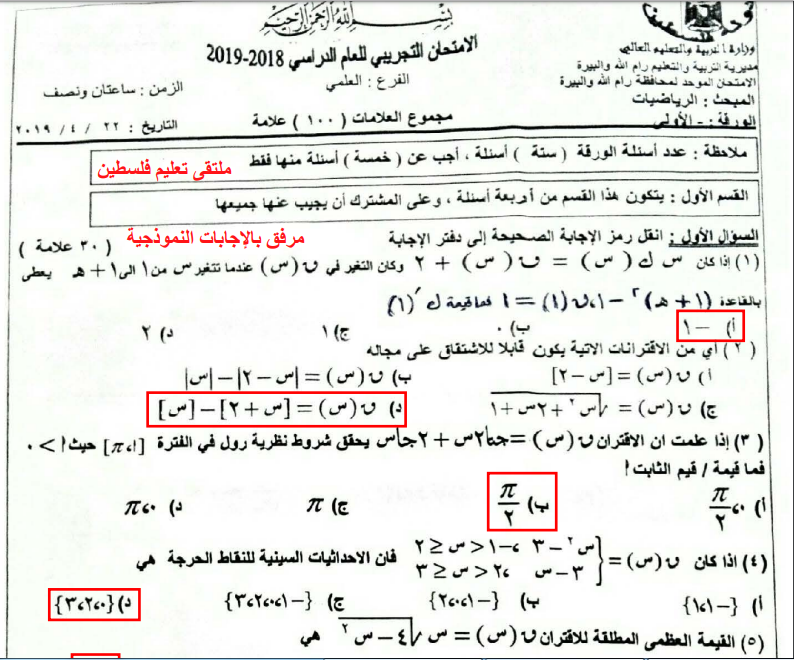 بسم الله الرحمن الرحيم
وزارة التربية والتعليم العالي
الامتحان التجريبي للعام الدراسي 2018-2019
مديرية التربية والتعليم رام الله والبيرة
الفرع : العلمي
الامتحان الموحد لمحافظة رام الله والبيرة
الزمن : ساعتان ونصف
المبحث : الرياضيات
مجموع العلامات ( ١٠٠ ) علامة
الورقة : - الأولى
التاريخ : ٢٢ / ٤ / ٢٠١٩
ملاحظة : عدد أسئلة الورقة ( ستة ) أسئلة ، أجب عن ( خمسة ) أسئلة منها فقط
ملتقى تعليم فلسطين
القسم الأول : يتكون هذا القسم من أربعة أسئلة ، وعلى المشترك أن يجيب عنها جميعها
السؤال الأول : انقل رمز الإجابة الصحيحة إلى دفتر الإجابة ( ٣٠ علامة )
مرفق بالإجابات النموذجية
(١) إذا كان س ك ( س ) = ن ( س ) + ٢ وكان التغير في ن ( س ) عندما تتغير س من ١ الى ١ + هـ يعطى
بالقاعدة (١ + هـ)٢ - ١ ، ن (١) = ١ فما قيمة ك ′(١)
أ) -١ ب) ٠ ج) ١ د) ٢
(٢) أي من الاقترانات الاتية يكون قابلا للاشتقاق على مجاله
أ) ن (س) = [س - ٢] ب) ن (س) = |س - ٢| - |س|
ج) ن (س) = √س٢ + ٢س + ١ د) ن (س) = [س + ٢] - [س]
(٣) إذا علمت ان الاقتران ن (س) = جتا٢س + ٢جاس يحقق شروط نظرية رول في الفترة [أ، π] حيث أ > ٠
فما قيمة / قيم الثابت أ
أ) ٠، π/٢ ب) π/٢ ج) π د) ٠، π
(٤) اذا كان ن (س) = { س٢ - ٣ ، -١ < س ≤ ٢
٣ - س ، ٢ < س ≤ ٣
فان الاحداثيات السينية للنقاط الحرجة هي
أ) {-١، ١} ب) {-١، ٠، ٢} ج) {-١، ٠، ٢، ٣} د) {٠، ٢، ٣}
(٥) القيمة العظمى المطلقة للاقتران ن (س) = س √٤ - س٢ هي